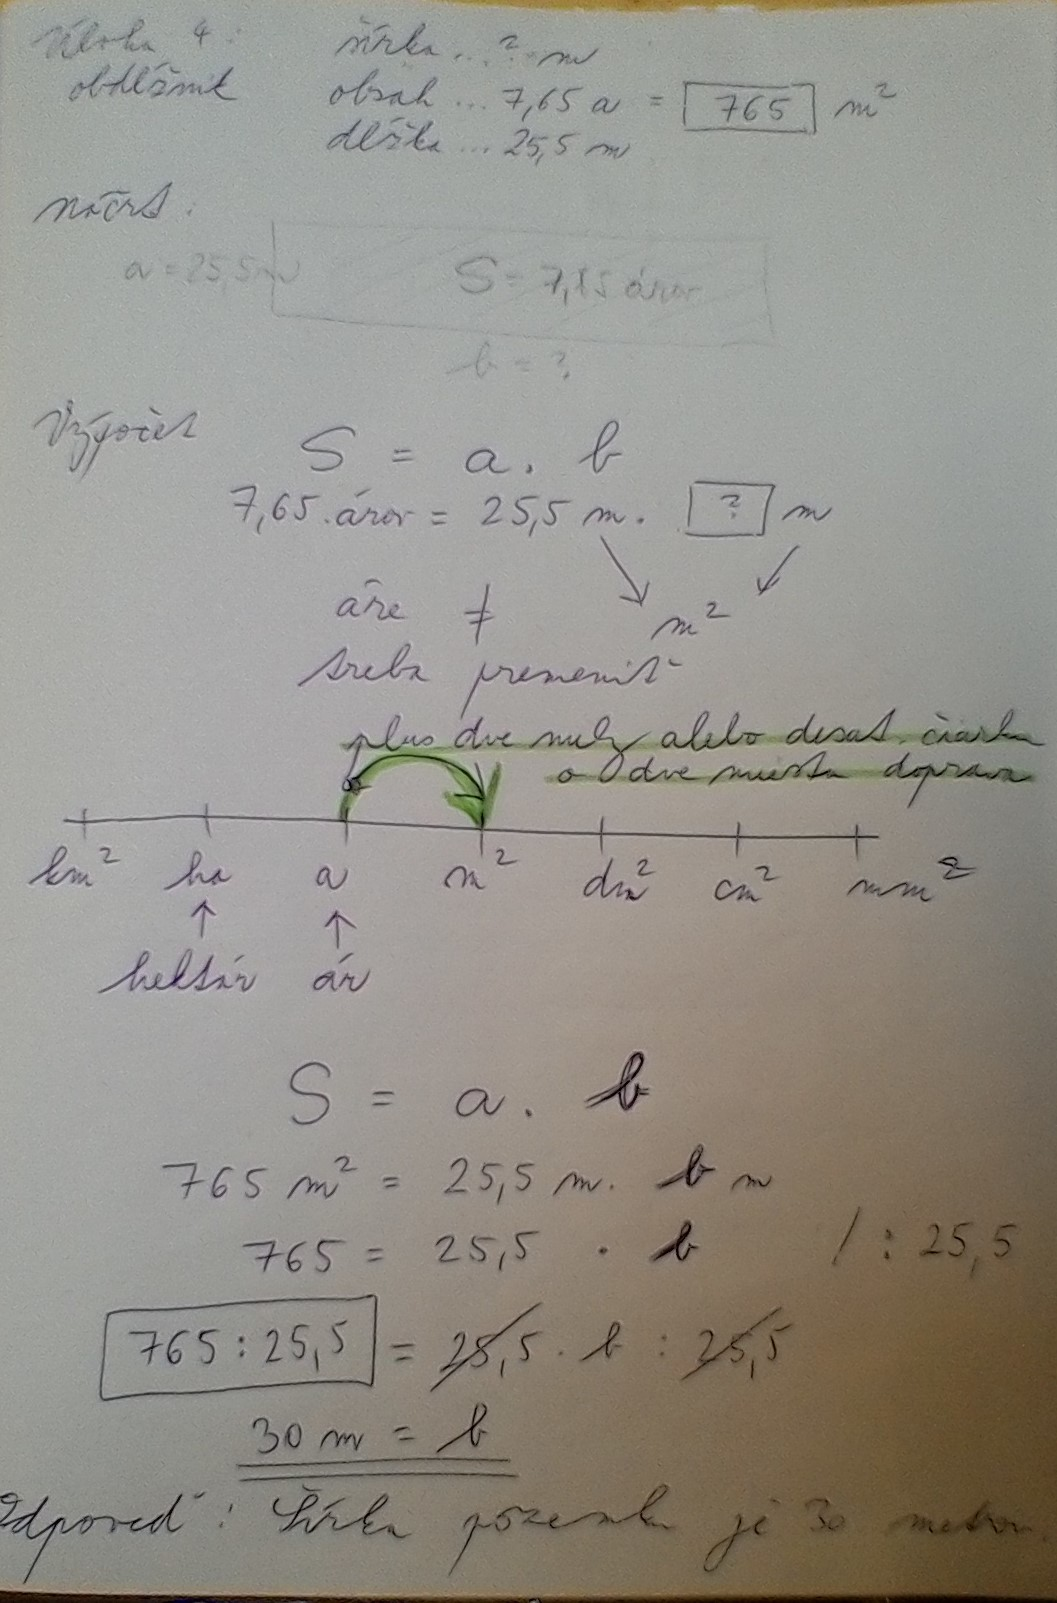 Úloha 4: šírka ... ? m
obdĺžnik obsah ... 7,65 a = 765 m²
dĺžka ... 25,5 m
Náčrt:
a = 25,5 m S = 7,65 árov
b = ?
Výpočet
S = a . b
7,65 árov = 25,5 m . ? m
áre ≠ m²
treba premeniť
plus dve nuly alebo desat. čiarka
o dve miesta doprava
km² ha a m² dm² cm² mm²
hektár ár
S = a . b
765 m² = 25,5 m . b m
765 = 25,5 . b / : 25,5
765 : 25,5 = 25,5 . b : 25,5
30 m = b
Odpoveď: Šírka pozemku je 30 metrov.